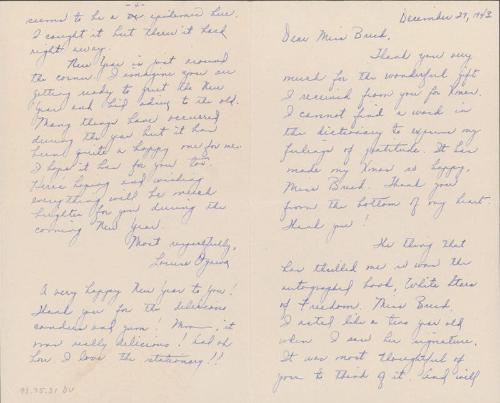 December 29, 1943
Dear Miss Breed,
Thank you very
much for the wonderful gift
I received from you for Xmas.
I cannot find a word in
the dictionary to express my
feelings of gratitude. It has
made my Xmas so happy,
Miss Breed. Thank you
from the bottom of my heart.
Thank you!
The thing that
has thrilled me so was the
autographed book, White Stars
of Freedom. Miss Breed,
I acted like a two year old
when I saw his signature.
It was most thoughtful of
you to think of it. And will
-4-
seems to be a epidemic here.
I caught it but threw it back
right away.
New Year is just around
the corner. I imagine you are
getting ready to greet the New
Year and bid adieu to the old.
Many things have occurred
during the year but it has
been quite a happy one for me.
I hope it has for you too.
Here's hoping and wishing
everything will be much
brighter for you during the
coming New Year.
Most respectfully,
Louise Ogawa
A very happy New Year to you!
Thank you for the delicious
candies and gum! Mm— it
was really delicious! And oh
how I love the stationery!!
93.75.31 DU